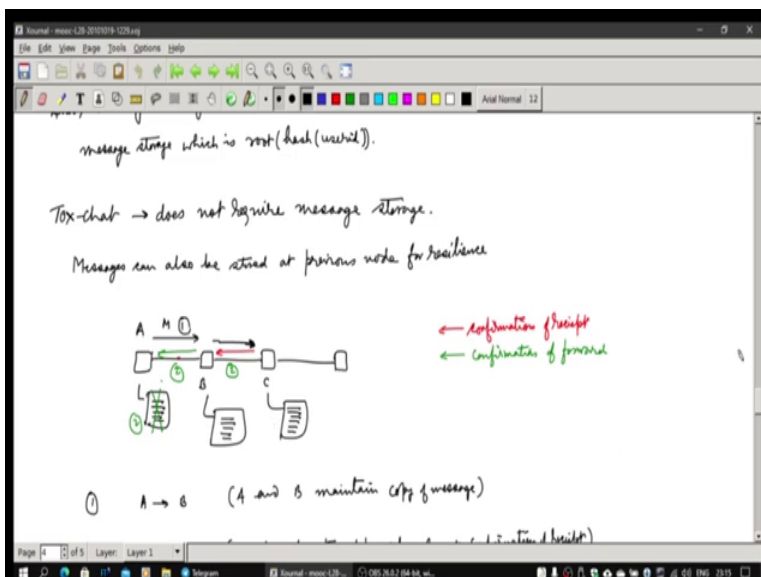 Xournal - mooc-L28-20101019-1229.xoj
File Edit View Page Tools Options Help
Arial Normal 12
message storage which is root(hash(userid)).
Tox-chat → does not require message storage.
Messages can also be stored at previous node for resilience
A M ①
← confirmation of receipt
← confirmation of forward
② ②
B C
②
① A → B (A and B maintain copy of message)
Page 4 of 5 Layer: Layer 1
Telegram Xournal - mooc-L28-... OBS 26.0.2 (64-bit, wi... ENG 23:15